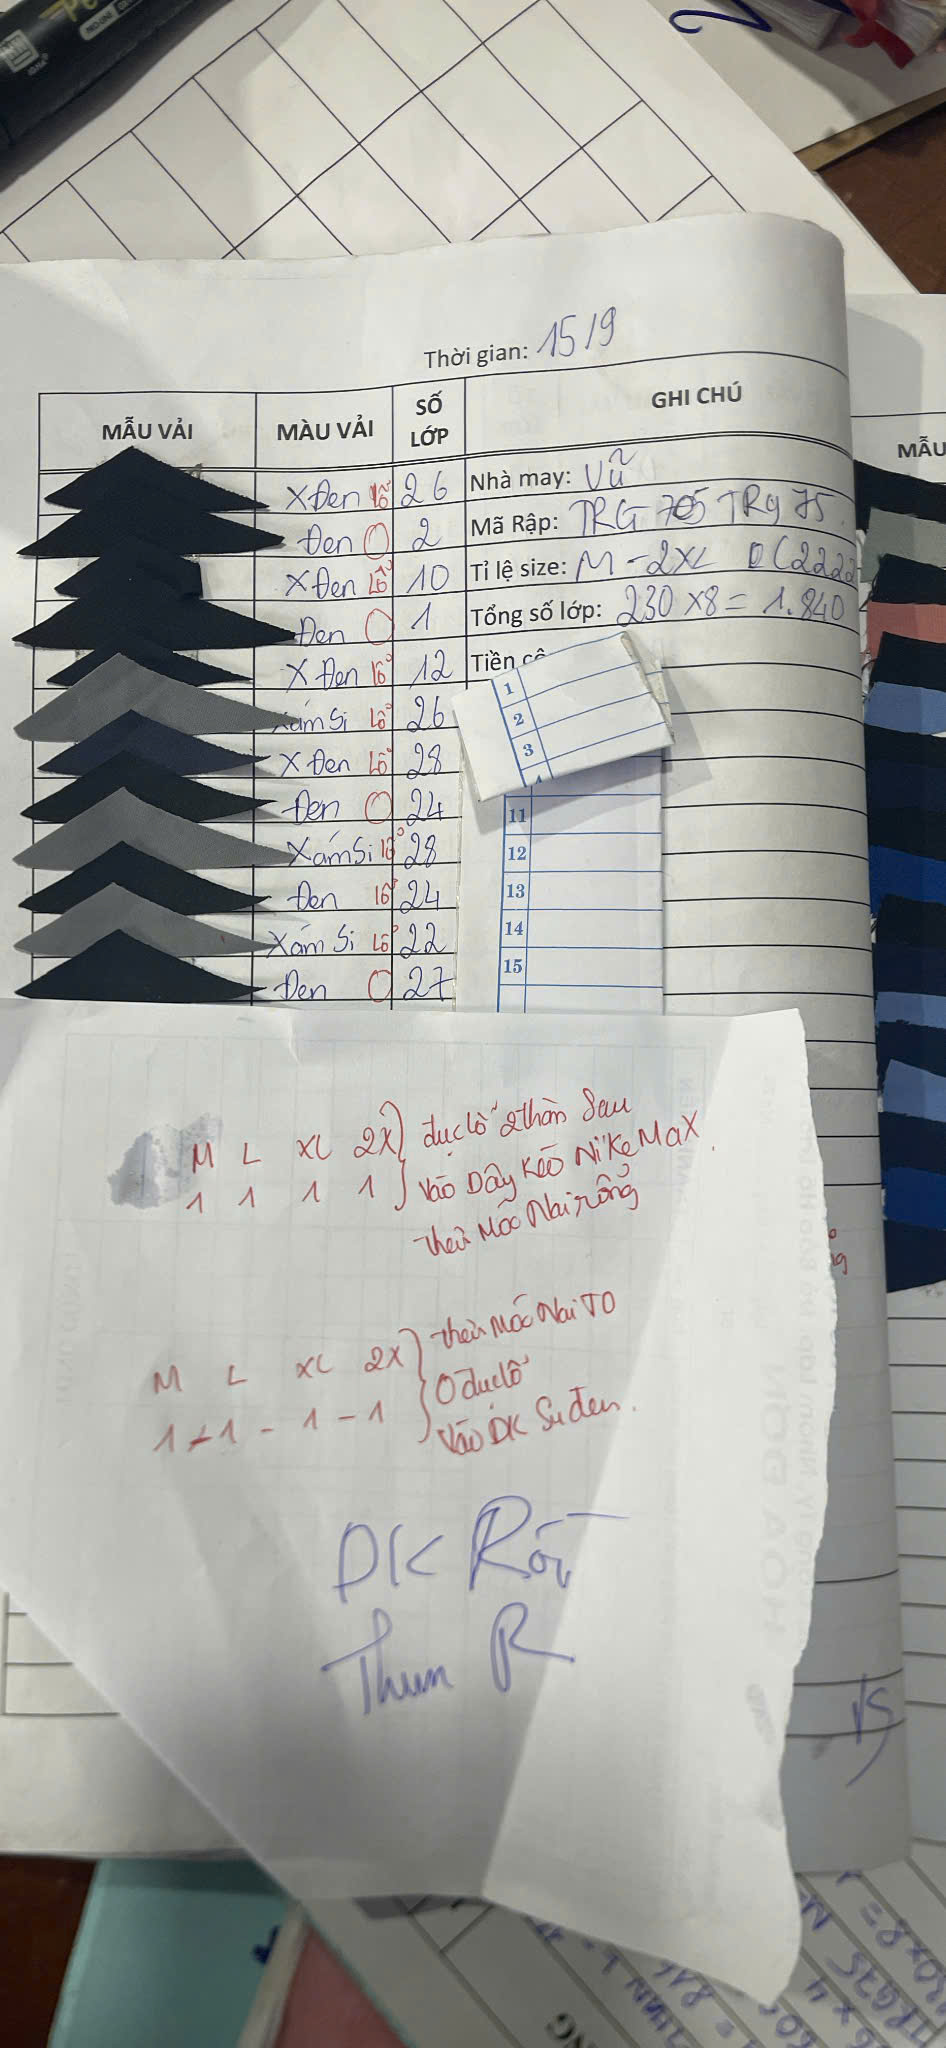 Thời gian: 15/9
MẪU VẢI MÀU VẢI SỐ LỚP GHI CHÚ
MẪU
XĐen lỗ 26 Nhà may: Vũ
Đen O 2 Mã Rập: TRG 75
XĐen Lỗ 10 Tỉ lệ size: M - 2XL (2222
Đen O 1 Tổng số lớp: 230 x8 = 1.840
X Đen lỗ 12 Tiền
Xám Si lỗ 26
X Đen Lỗ 28
Đen O 24
Xám Si lỗ 28
Đen lỗ 24
Xám Si Lỗ 22
Đen O 27
1
2
3
11
12
13
14
15
M L XL 2X } đục lỗ 2 thân Sau
1 1 1 1 } Vào Dây Kéo NiKe MaX.
thêu Móc Nai rỗng
M L XL 2X } thêu Móc Nai TO
O đục lỗ
1 - 1 - 1 - 1 } Vào DK Su đen.
DK Rồi
Thun R